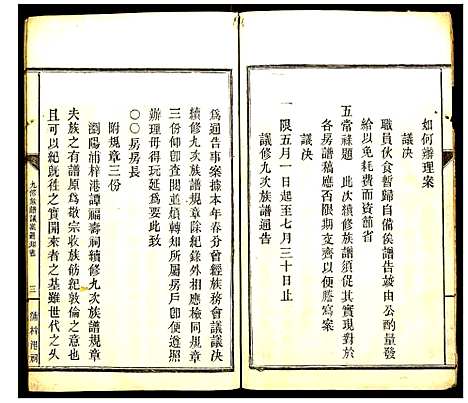 如何辦理案
議決
職員伙食暫歸自備俟譜告竣由公酌量發
給以免耗費而資節省
五常祿題 此次續修族譜須促其實現對於
各房譜稿應否限期支齊以便謄寫案
議決
限五月一日起至七月三十日止
議修九次族譜通告
一
為通告事案據本年春分會經族務會議議決
續修九次族譜規章除紀錄外相應檢同規章
三份仰即查閱並煩轉知所屬房戶即便遵照
辦理毋得玩延為要此致
〇〇房房長
附規章三份
瀏陽浦梓港譚福壽祠續修九次族譜規章
夫族之有譜原為敬宗收族飭紀敦倫之意也
且可以紀既往之實開來者之基雖世代之久
三